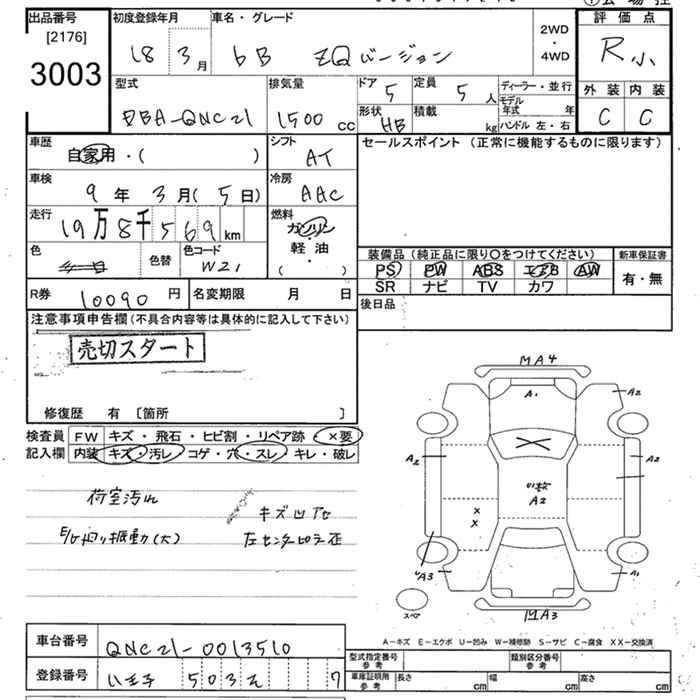 出品番号 [2176] 3003
初度登録年月 18 3月
車名・グレード bB ZQバージョン
2WD・4WD
評価点 R小
型式 DBA-QNC21
排気量 1500 CC
ドア 5
定員 5人
形状 HB
積載 kg
ディーラー・並行
モデル年式 年
ハンドル 左・右
外装 C
内装 C
車歴 自家用・( )
シフト AT
セールスポイント (正常に機能するものに限ります)
車検 9年 3月(5日)
冷房 AAC
走行 19万8千569km
燃料 ガソリン 軽・油 ( )
色
色替
色コード W21
装備品 (純正品に限り〇をつけてください)
新車保証書 有・無
PS PW ABS エアB AW
SR ナビ TV カワ
R券 10090円
名変期限 月 日
後日品
注意事項申告欄 (不具合内容等は具体的に記入して下さい)
売切スタート
修復歴 有 〔箇所 〕
検査員記入欄
FW キズ・飛石・ヒビ割・リペア跡・×要
内装 キズ・汚レ・コゲ・穴・スレ・キレ・破レ
荷室汚れ
キズ凹アセ
E/G回り振動(大)
左センターピラ歪
MA4
A1
A2
A2
A2
A2
X
X
UA3
A1
スペア
A3
A-キズ E-エクボ U-凹み W-補修跡 S-サビ C-腐食 XX-交換済
車台番号 QNC21-0013510
登録番号 八王子 503 7
型式指定番号 参考
類別区分番号 参考
車庫証明用 参考 長さ cm 幅 cm 高さ cm